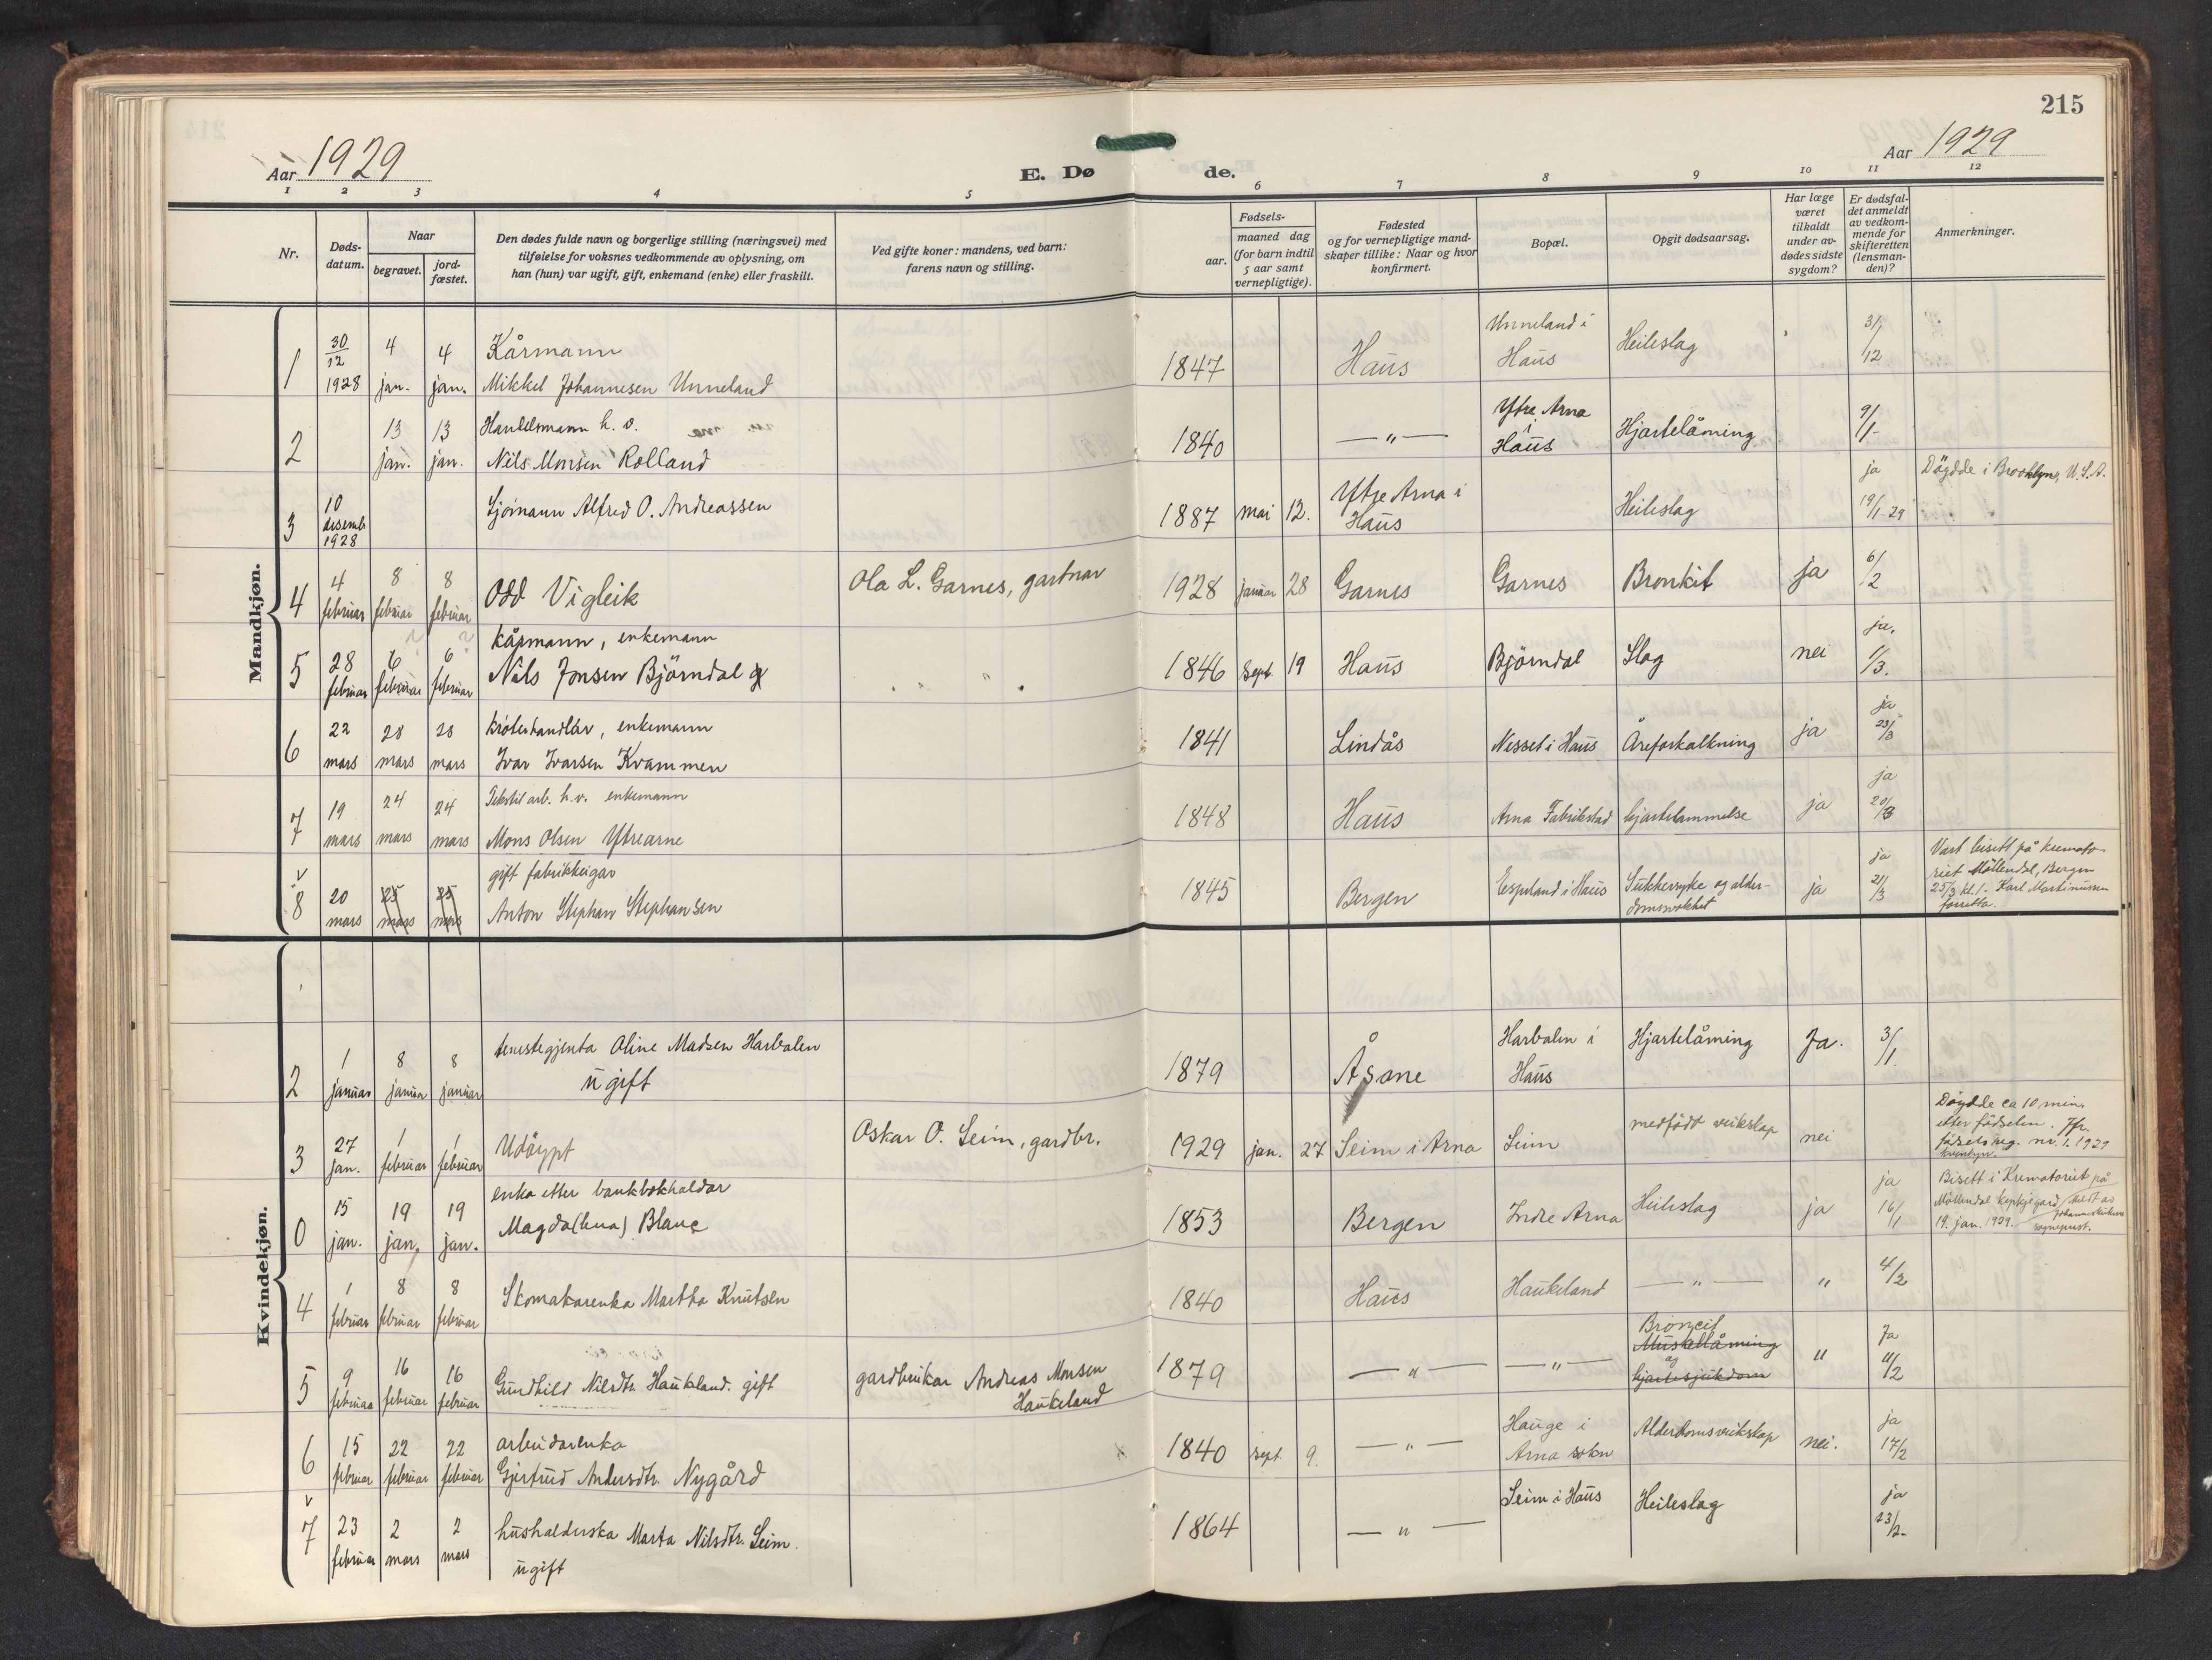 215
Aar 1929
E. Dø
de.
Aar 1929
1 2 3 4 5 6 7 8 9 10 11 12
Nr.
Døds-
datum.
Naar
begravet.
jord-
fæstet.
Den dødes fulde navn og borgerlige stilling (næringsvei) med
tilføielse for voksnes vedkommende av oplysning, om
han (hun) var ugift, gift, enkemand (enke) eller fraskilt.
Ved gifte koner: mandens, ved barn:
farens navn og stilling.
Fødsels-
aar.
maaned dag
(for barn indtil
5 aar samt
vernepligtige).
Fødested
og for vernepligtige mand-
skaper tillike: Naar og hvor
konfirmert.
Bopæl.
Opgit dødsaarsag.
Har læge
været
tilkaldt
under av-
dødes sidste
sygdom?
Er dødsfal-
det anmeldt
av vedkom-
mende for
skifteretten
(lensman-
den)?
Anmerkninger.
Mandkjøn.
1 30/12 1928 4 jan. 4 jan. Kårmann
Mikkel Johannesen Unneland 1847 Haus Unneland i Haus Heileslag 31/12
2 13 jan. 13 jan. Handelsmann h. v.
Nils Monsen Rolland 1840 —"— Ytre Arna i Haus Hjartelåming 9/1
3 10 desemb. 1928 Sjømann Alfred O. Andreassen 1887 mai 12. Ytre Arna i Haus Heileslag ja 19/1-29 Døydde i Brooklyn, U.S.A.
4 4 februar 8 februar 8 februar Odd Vigleik Ola L. Garnes, gartnar 1928 januar 28 Garnes Garnes Bronkit ja 6/2
5 28 februar 6 februar 6 februar Kårmann, enkemann
Nils Jonsen Björndal 1846 Sept. 19 Haus Björndal Slag nei ja. 1/3.
6 22 mars 28 mars 28 mars Krøterhandlar, enkemann
Ivar Ivarsen Kvammen 1841 Lindås Nesset i Haus Åreforkalkning ja ja 23/3
7 19 mars 24 mars 24 mars Tekstilarb. h.v. enkemann
Mons Olsen Ytrearne 1848 Haus Arna Fabrikstad hjartelammelse ja ja 20/3
8 20 mars 25 mars 25 mars gift fabrikkeigar
Anton Stephan Stephansen 1845 Bergen Espeland i Haus Sukkersyke og alder-
domssvakhet ja ja 21/3 Vart bisett på kremato-
riet Møllendal, Bergen
25/3 kl. 1. Karl Martinussen
forretta.
Kvindekjøn.
2 1 januar 8 januar 8 januar tenestegjenta Oline Madsen Harbalen
ugift 1879 Åsane Harbalen i Haus Hjartelåming Ja. 3/1.
3 27 jan. 1 februar 1 februar Udøypt Oskar O. Seim, gardbr. 1929 jan. 27 Seim i Arna Seim medfödt veikskap nei Døydde ca 10 min.
etter födselen. Jfr.
födselsreg. nr. 1. 1929
kvinkyn.
0 15 jan. 19 jan. 19 jan. enka etter bankbokhaldar
Magda(lena) Blanc 1853 Bergen Indre Arna Heileslag ja ja 16/1 Bisett i Krematoriet på
Møllendal kyrkjegard
19. jan. 1929. sogneprest.
4 1 februar 8 februar 8 februar Skomakarenka Martha Knutsen 1840 Haus Haukeland —"— " 4/2
5 9 februar 16 februar 16 februar Gundhild Nilsdtr. Haukland. gift gardbrukar Andreas Monsen
Haukeland 1879 —"— —"— Broncit
Muskellåming
og
hjartesjukdom " Ja 11/2
6 15 februar 22 februar 22 februar arbeidarenka
Gjertrud Andersdtr. Nygård 1840 sept. 9. —"— Hauge i Arna sokn Alderdomsveikskap nei. ja 17/2
7 23 februar 2 mars 2 mars husholderska Marta Nilsdtr. Seim.
ugift 1864 —"— Seim i Haus Heileslag ja 23/2